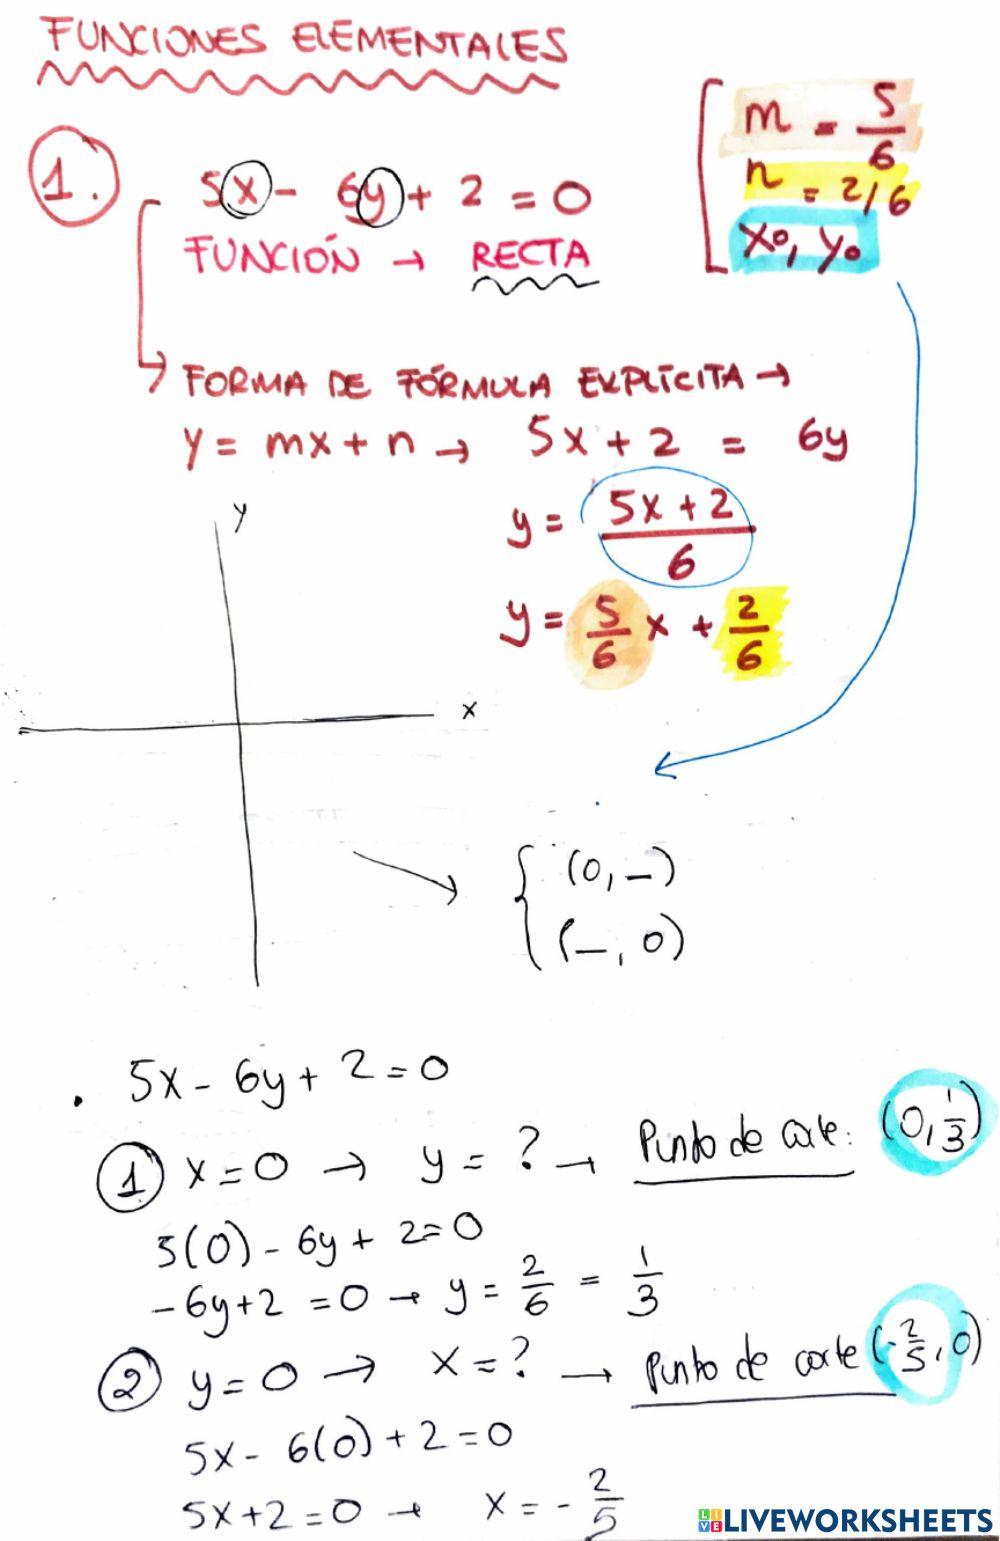 FUNCIONES ELEMENTALES
1. 5x - 6y + 2 = 0
FUNCIÓN → RECTA
m = 5/6
n = 2/6
x0, y0
↳ FORMA DE FÓRMULA EXPLÍCITA →
y = mx + n → 5x + 2 = 6y
y = (5x + 2)/6
y = 5/6 x + 2/6
y
x
(0, _)
(_, 0)
. 5x - 6y + 2 = 0
① x = 0 → y = ? → Punto de corte: (0, 1/3)
5(0) - 6y + 2 = 0
-6y + 2 = 0 → y = 2/6 = 1/3
② y = 0 → x = ? → Punto de corte (-2/5, 0)
5x - 6(0) + 2 = 0
5x + 2 = 0 → x = -2/5
LIVEWORKSHEETS